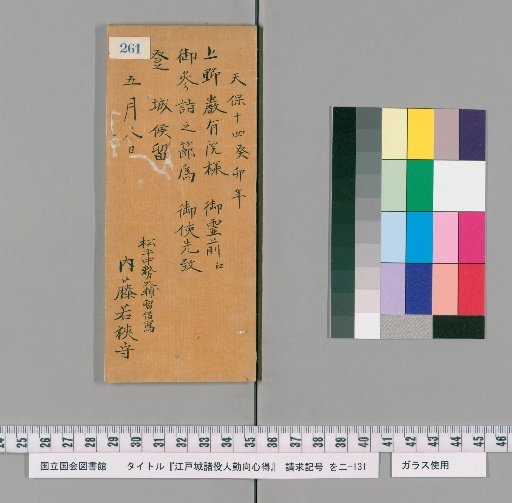 261
天保十四癸卯年
上野嚴有院様 御霊前江
御参詣之節爲 御使先致
登 城候留
五月八日
内藤若狭守
24 25 26 27 28 29 30 31 32 33 34 35 36 37 38 39 40 41 42 43 44 45 46
国立国会図書館 タイトル『江戸城諸役人勤向心得』 請求記号 を二-131 ガラス使用